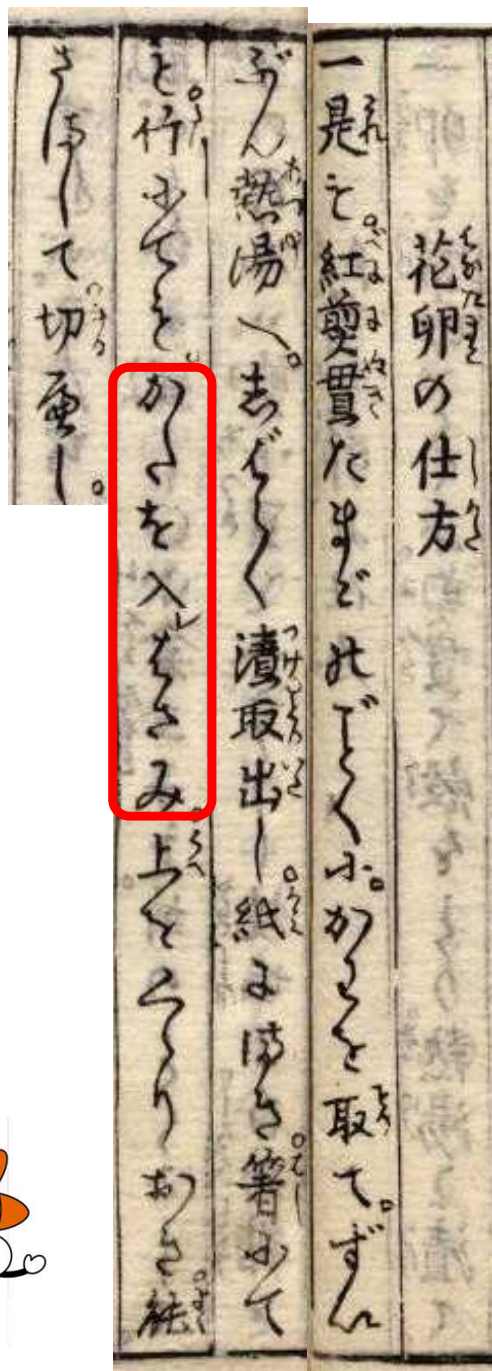 花卵の仕方
一是も。紅煎貫たまごのごとくに。かわを取て。ずい
ぶん熱湯へ。しばらく漬取出し。紙にまき。箸にて
も。竹にても。かたを入レはさみ。上をくゝりおき。能
さまして切べし。